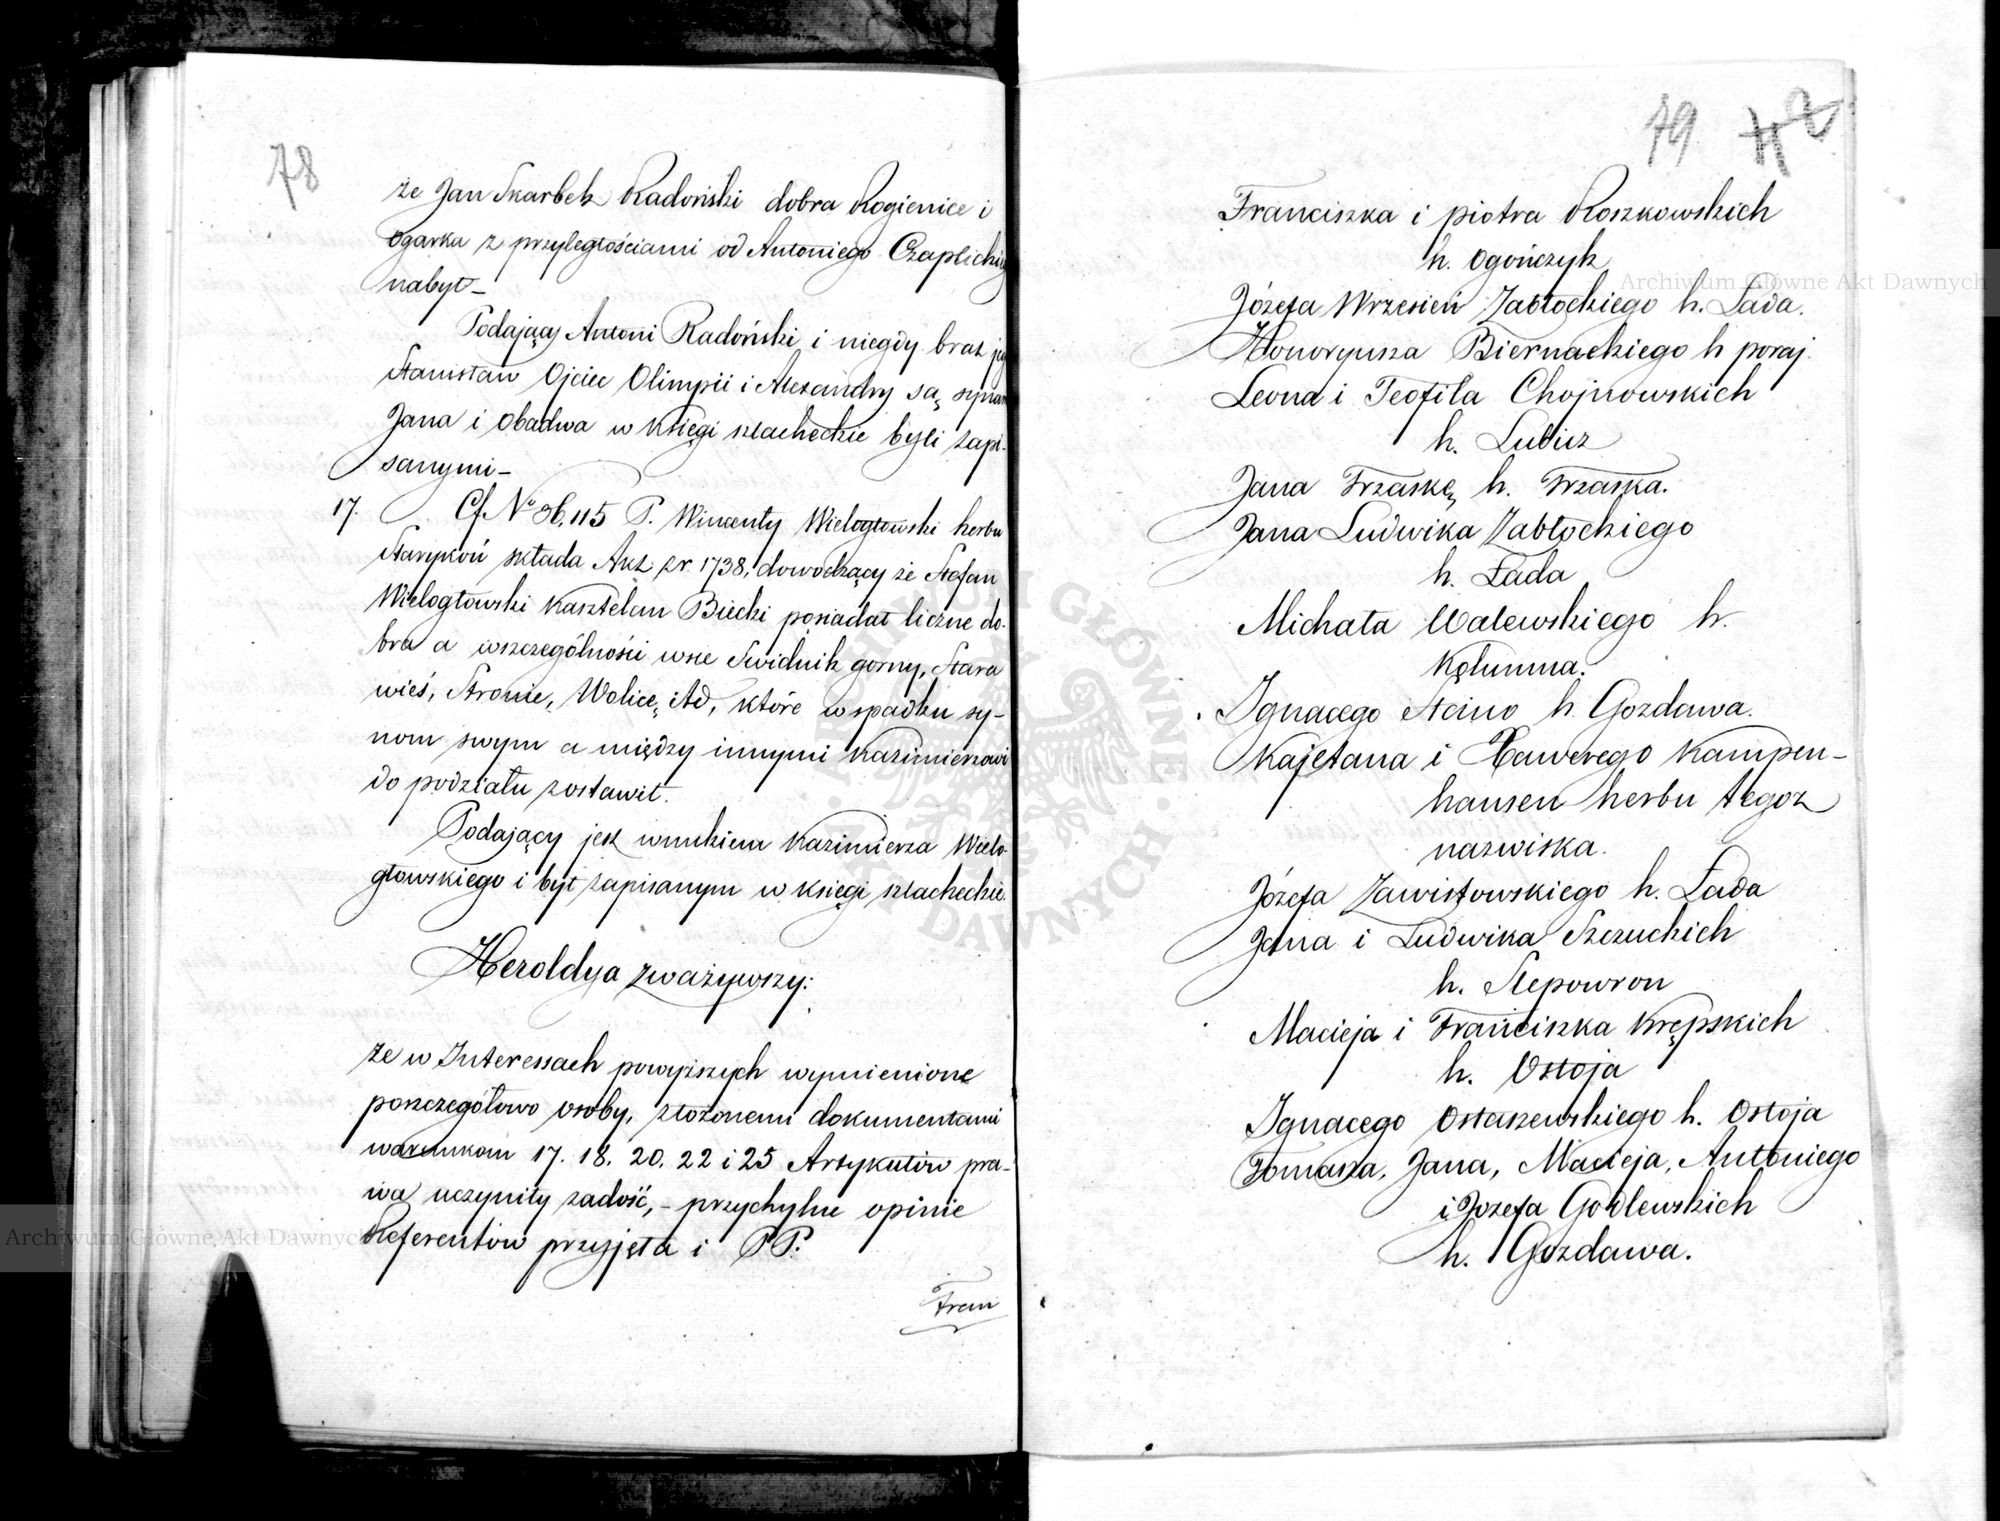 78
że Jan Skarbek Radoński dobra Rogienice i
Ogarka z przyległościami od Antoniego Czaplickieg
nabył_
Podający Antoni Radoński i niegdy brat je
Stanisław Ojciec Olimpii i Alexandry są synam
Jana i Obadwa w Księgi szlacheckie byli zapi-
sanymi_
17. Cf. No 115 P. Wincenty Wielogłowski herbu
Starykoń składa Akt z r. 1738, dowodzący że Stefan
Wielogłowski Kasztelan Biecki posiadał liczne do-
bra a wszczególności wsie Swidnik gorny, Stara
wieś, Stronie, Wolicę, itd, które w spadku sy-
nom swym a między innymi Kazimierzowi
do podziału zostawił.
Podający jest wnukiem Kazimierza Wielo-
głowskiego i był zapisanym w księgi szlacheckie.
Heroldya zważywszy:
że w Interessach powyższych wymienione
poszczegółowo osoby, złożonemi dokumentami
warunkom 17. 18. 20. 22 i 25 Artykułów pra-
wa uczyniły zadość, - przychylne opinie
Referentów przyjęła i PP.
Fran
79
Franciszka i piotra Roszkowskich
h. Ogończyk
Józefa Wrzesień Zabłockiego h. Łada.
Honoryusza Biernackiego h poraj.
Leona i Teofila Chojnowskich
h. Lubicz
Jana Trzaskę h. Trzaska.
Jana Ludwika Zabłockiego
h. Łada
Michała Walewskiego h.
Kolumna.
Ignacego Steino h. Gozdawa.
Kajetana i Xawerego Kampen-
hausen herbu tegoz
nazwiska.
Józefa Zawistowskiego h. Łada
Jana i Ludwika Szczuckich
h. Slepowron
Macieja i Franciszka Krępskich
h. Ostoja
Ignacego Ostaszewskiego h. Ostoja
Tomasza, Jana, Macieja, Antoniego
i Jozefa Godlewskich
h. Gozdawa.
Archiwum Główne Akt Dawnych
Archiwum Główne Akt Dawnych
ARCHIWUM GŁÓWNE AKT DAWNYCH